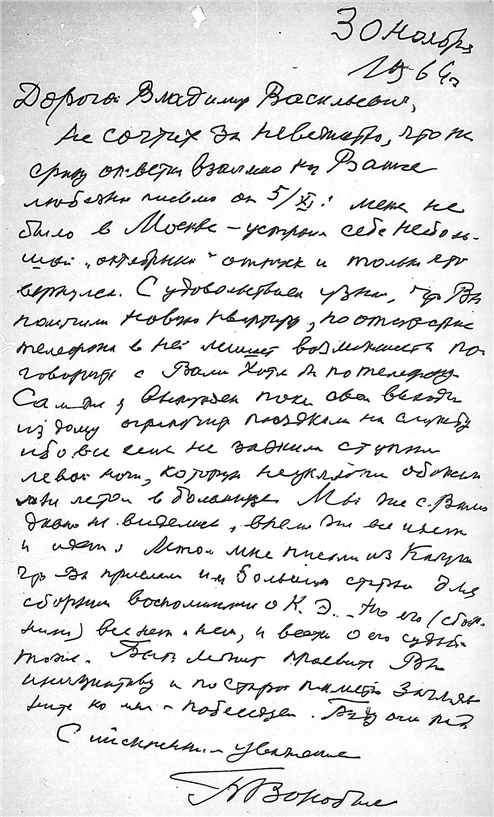 30 Ноября
1964 г.
Дорогой Владимир Васильевич,
Не сочтите за невежество, что не
сразу ответил взаимно на Ваше
любезное письмо от 5/XI: меня не
было в Москве – устроил себе неболь-
шой „октябрьский“ отпуск и только его
вернулся. С удовольствием узнал, что Вы
получили новую квартиру, но отсутствие
телефона в ней лишает возможности по-
говорить с Вами хотя бы по телефону.
Сам же я вынужден пока свои выходы
из дому ограничить поездками на службу
ибо все еще не зажила ступня
левой ноги, которую неуклюже обожгли
мне летом в больнице. Мы же с Вами
давно не виделись, время же все идет
и идет. Летом мне писали из Калуги
что Вы прислали им большую статью для
сборника воспоминаний о К.Э. Но его (сбор-
ника) все нет и нет, и вести о его судьбе
тоже. Быть может проявите Вы
инициативу и по старой памяти загля-
ните ко мне – побеседуем. Буду очень рад
С искренним уважением
Б Воробьев